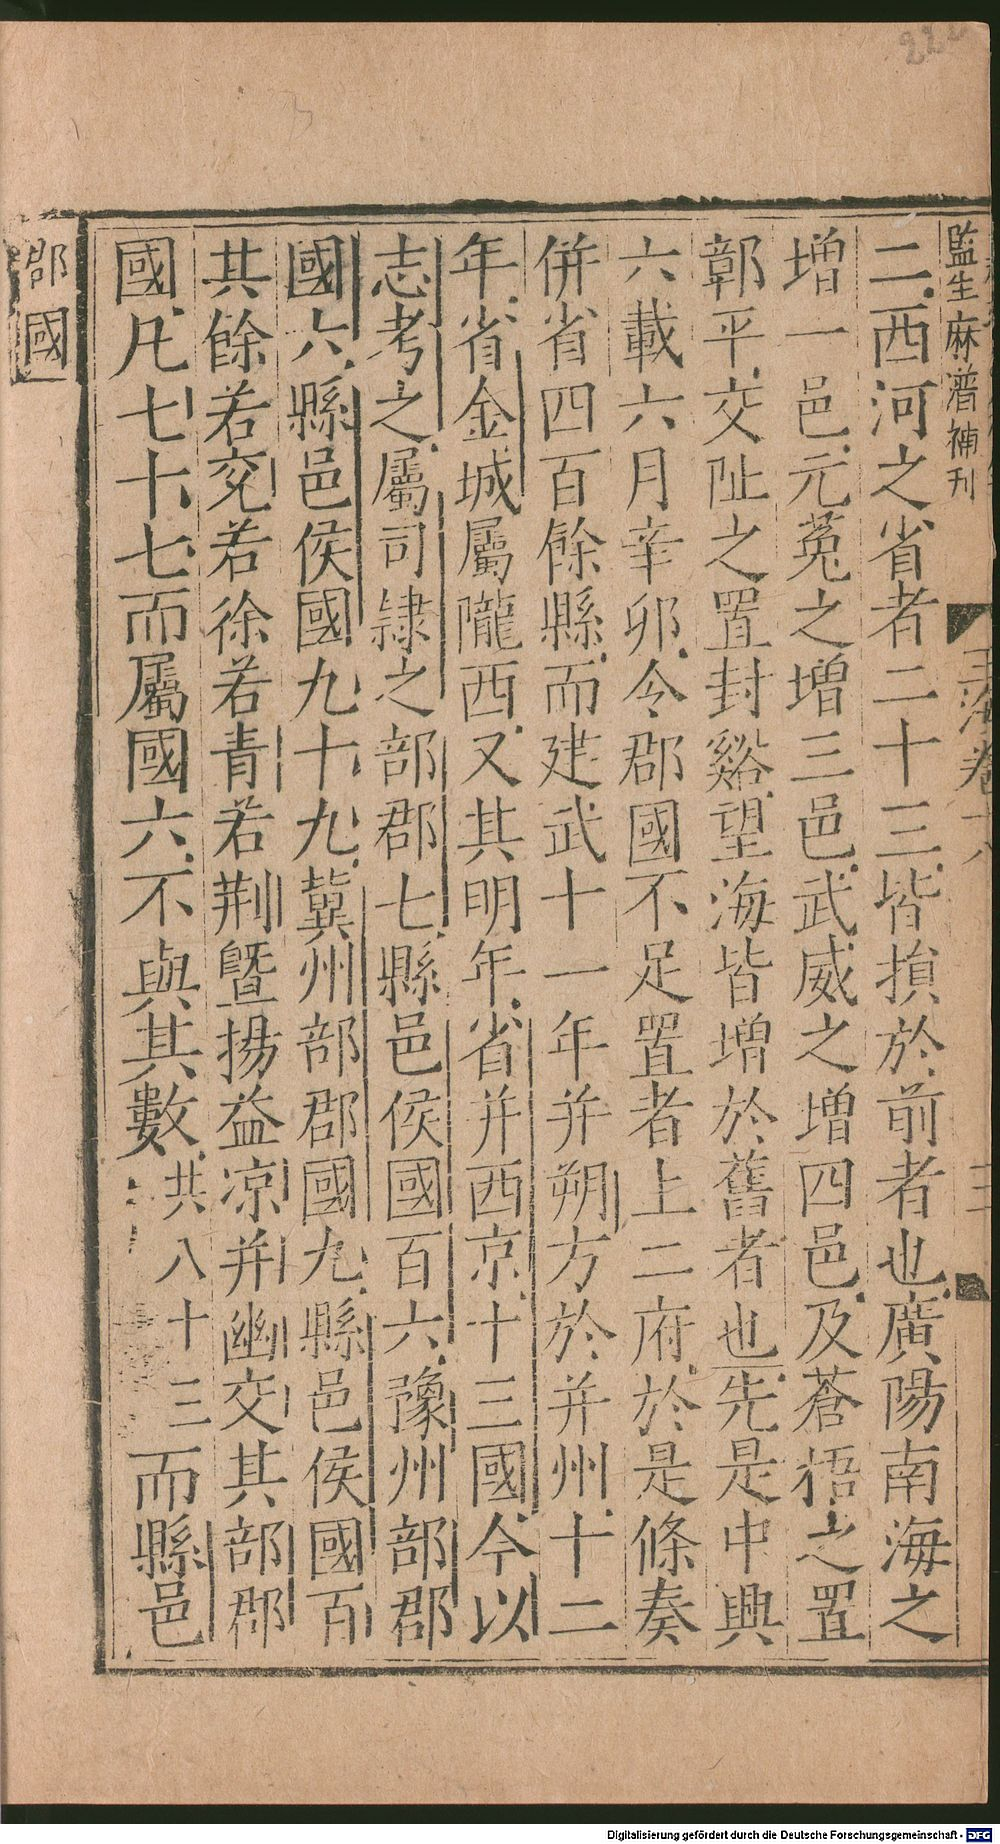 222
監生麻濟補刊
玉海卷十八
三十
二西河之省者二十三皆損於前者也廣陽南海之
增一邑元菟之增三邑武威之增四邑及蒼梧之置
鄣平交阯之置封谿望海皆增於舊者也先是中興
六載六月辛卯令郡國不足置者上二府於是條奏
併省四百餘縣而建武十一年并朔方於并州十二
年省金城屬隴西又其明年省并西京十三國今以
志考之屬司隷之部郡七縣邑侯國百六豫州部郡
國六縣邑侯國九十九冀州部郡國九縣邑侯國百
其餘若兗若徐若青若荆曁揚益凉并幽交其部郡
國凡七十七而屬國六不與其數共八十三而縣邑
郡國
Digitalisierung gefördert durch die Deutsche Forschungsgemeinschaft - DFG